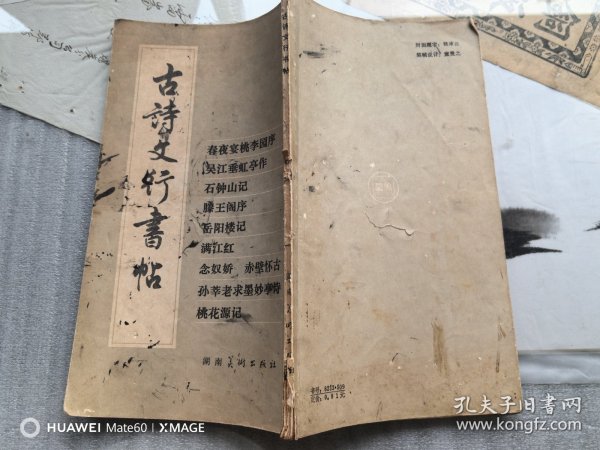 古詩文行書帖
春夜宴桃李园序
吴江垂虹亭作
石钟山记
滕王阁序
岳阳楼记
满江红
念奴娇 赤壁怀古
孙莘老求墨妙亭诗
桃花源记
湖南美術出版社
封面题字:
书号: 8233·509
定价: 0.81元
HUAWEI Mate60 | XMAGE
孔夫子旧书网
www.kongfz.com